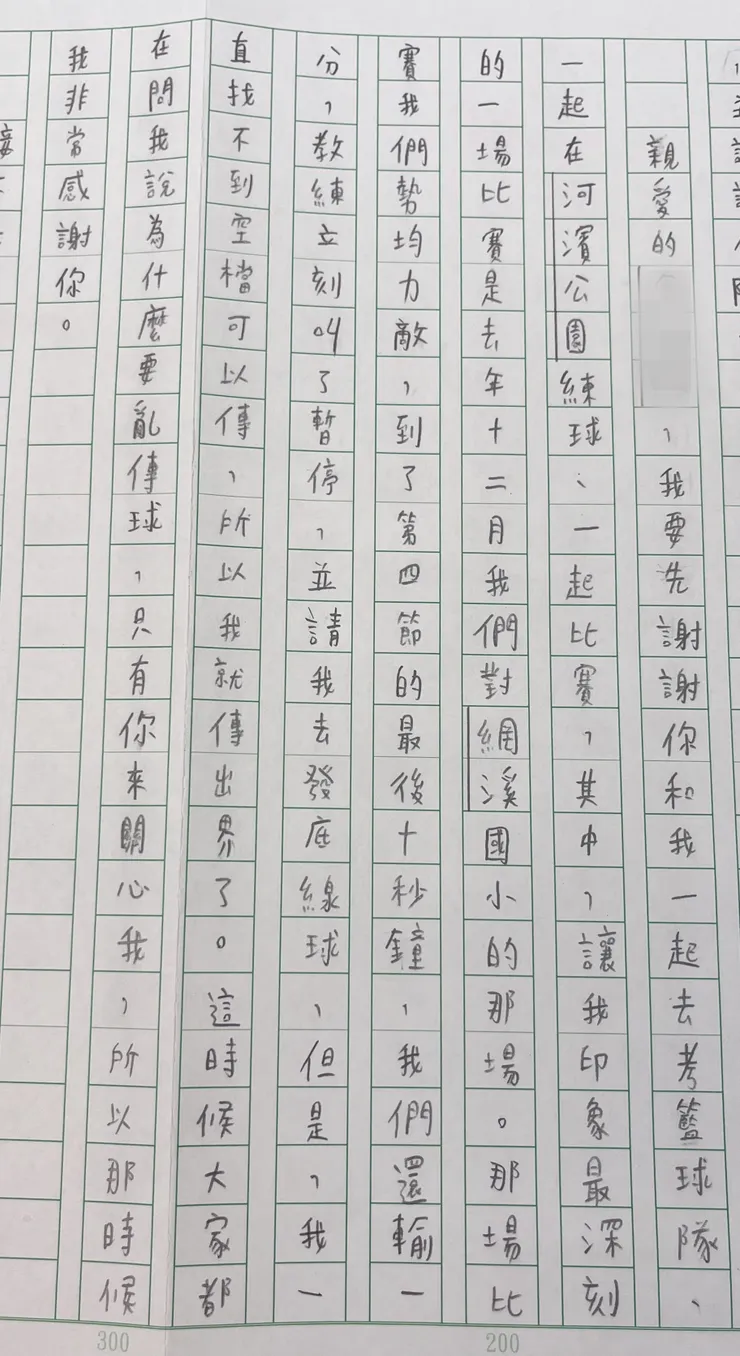 親愛的，我要先謝謝你和我一起去考籃球隊、
一起在河濱公園練球、一起比賽，其中，讓我印象最深刻
的一場比賽是去年十二月我們對網溪國小的那場。那場比
賽我們勢均力敵，到了第四節的最後十秒鐘，我們還輸一
分，教練立刻叫了暫停，並請我去發底線球，但是，我一
直找不到空檔可以傳，所以我就傳出界了。這時候大家都
在問我說為什麼要亂傳球，只有你來關心我，所以那時候
我非常感謝你。
200
300